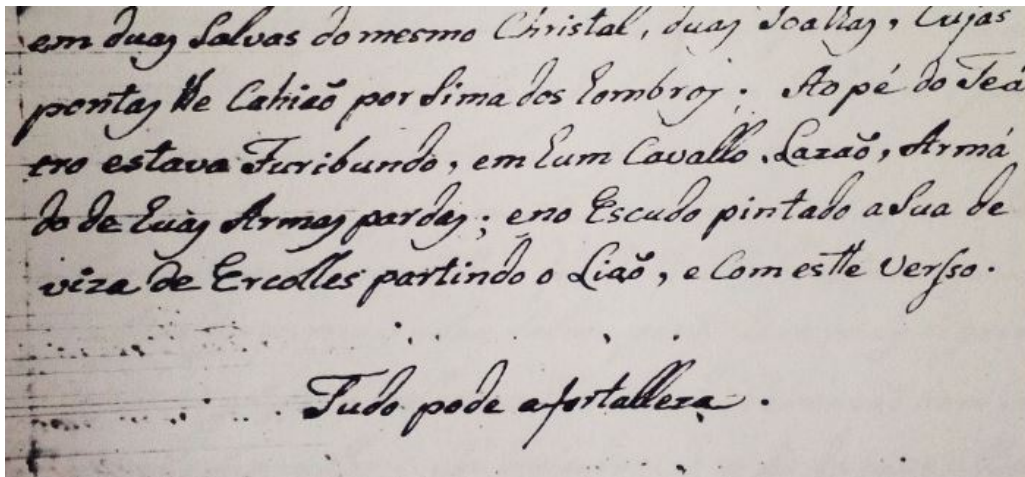 em duas Salvas do mesmo Christal, duas Toalhas, Cujas
pontas lhe Cahiaõ por Sima dos hombros. Ao pé do Teá
tro estava Furibundo, em hum Cavallo Lazaõ, Armá
do de huas Armas pardas; e no Escudo pintado a Sua de
viza de Ercolles partindo o Liaõ, e Com este Versso.
Tudo pode a fortalleza.